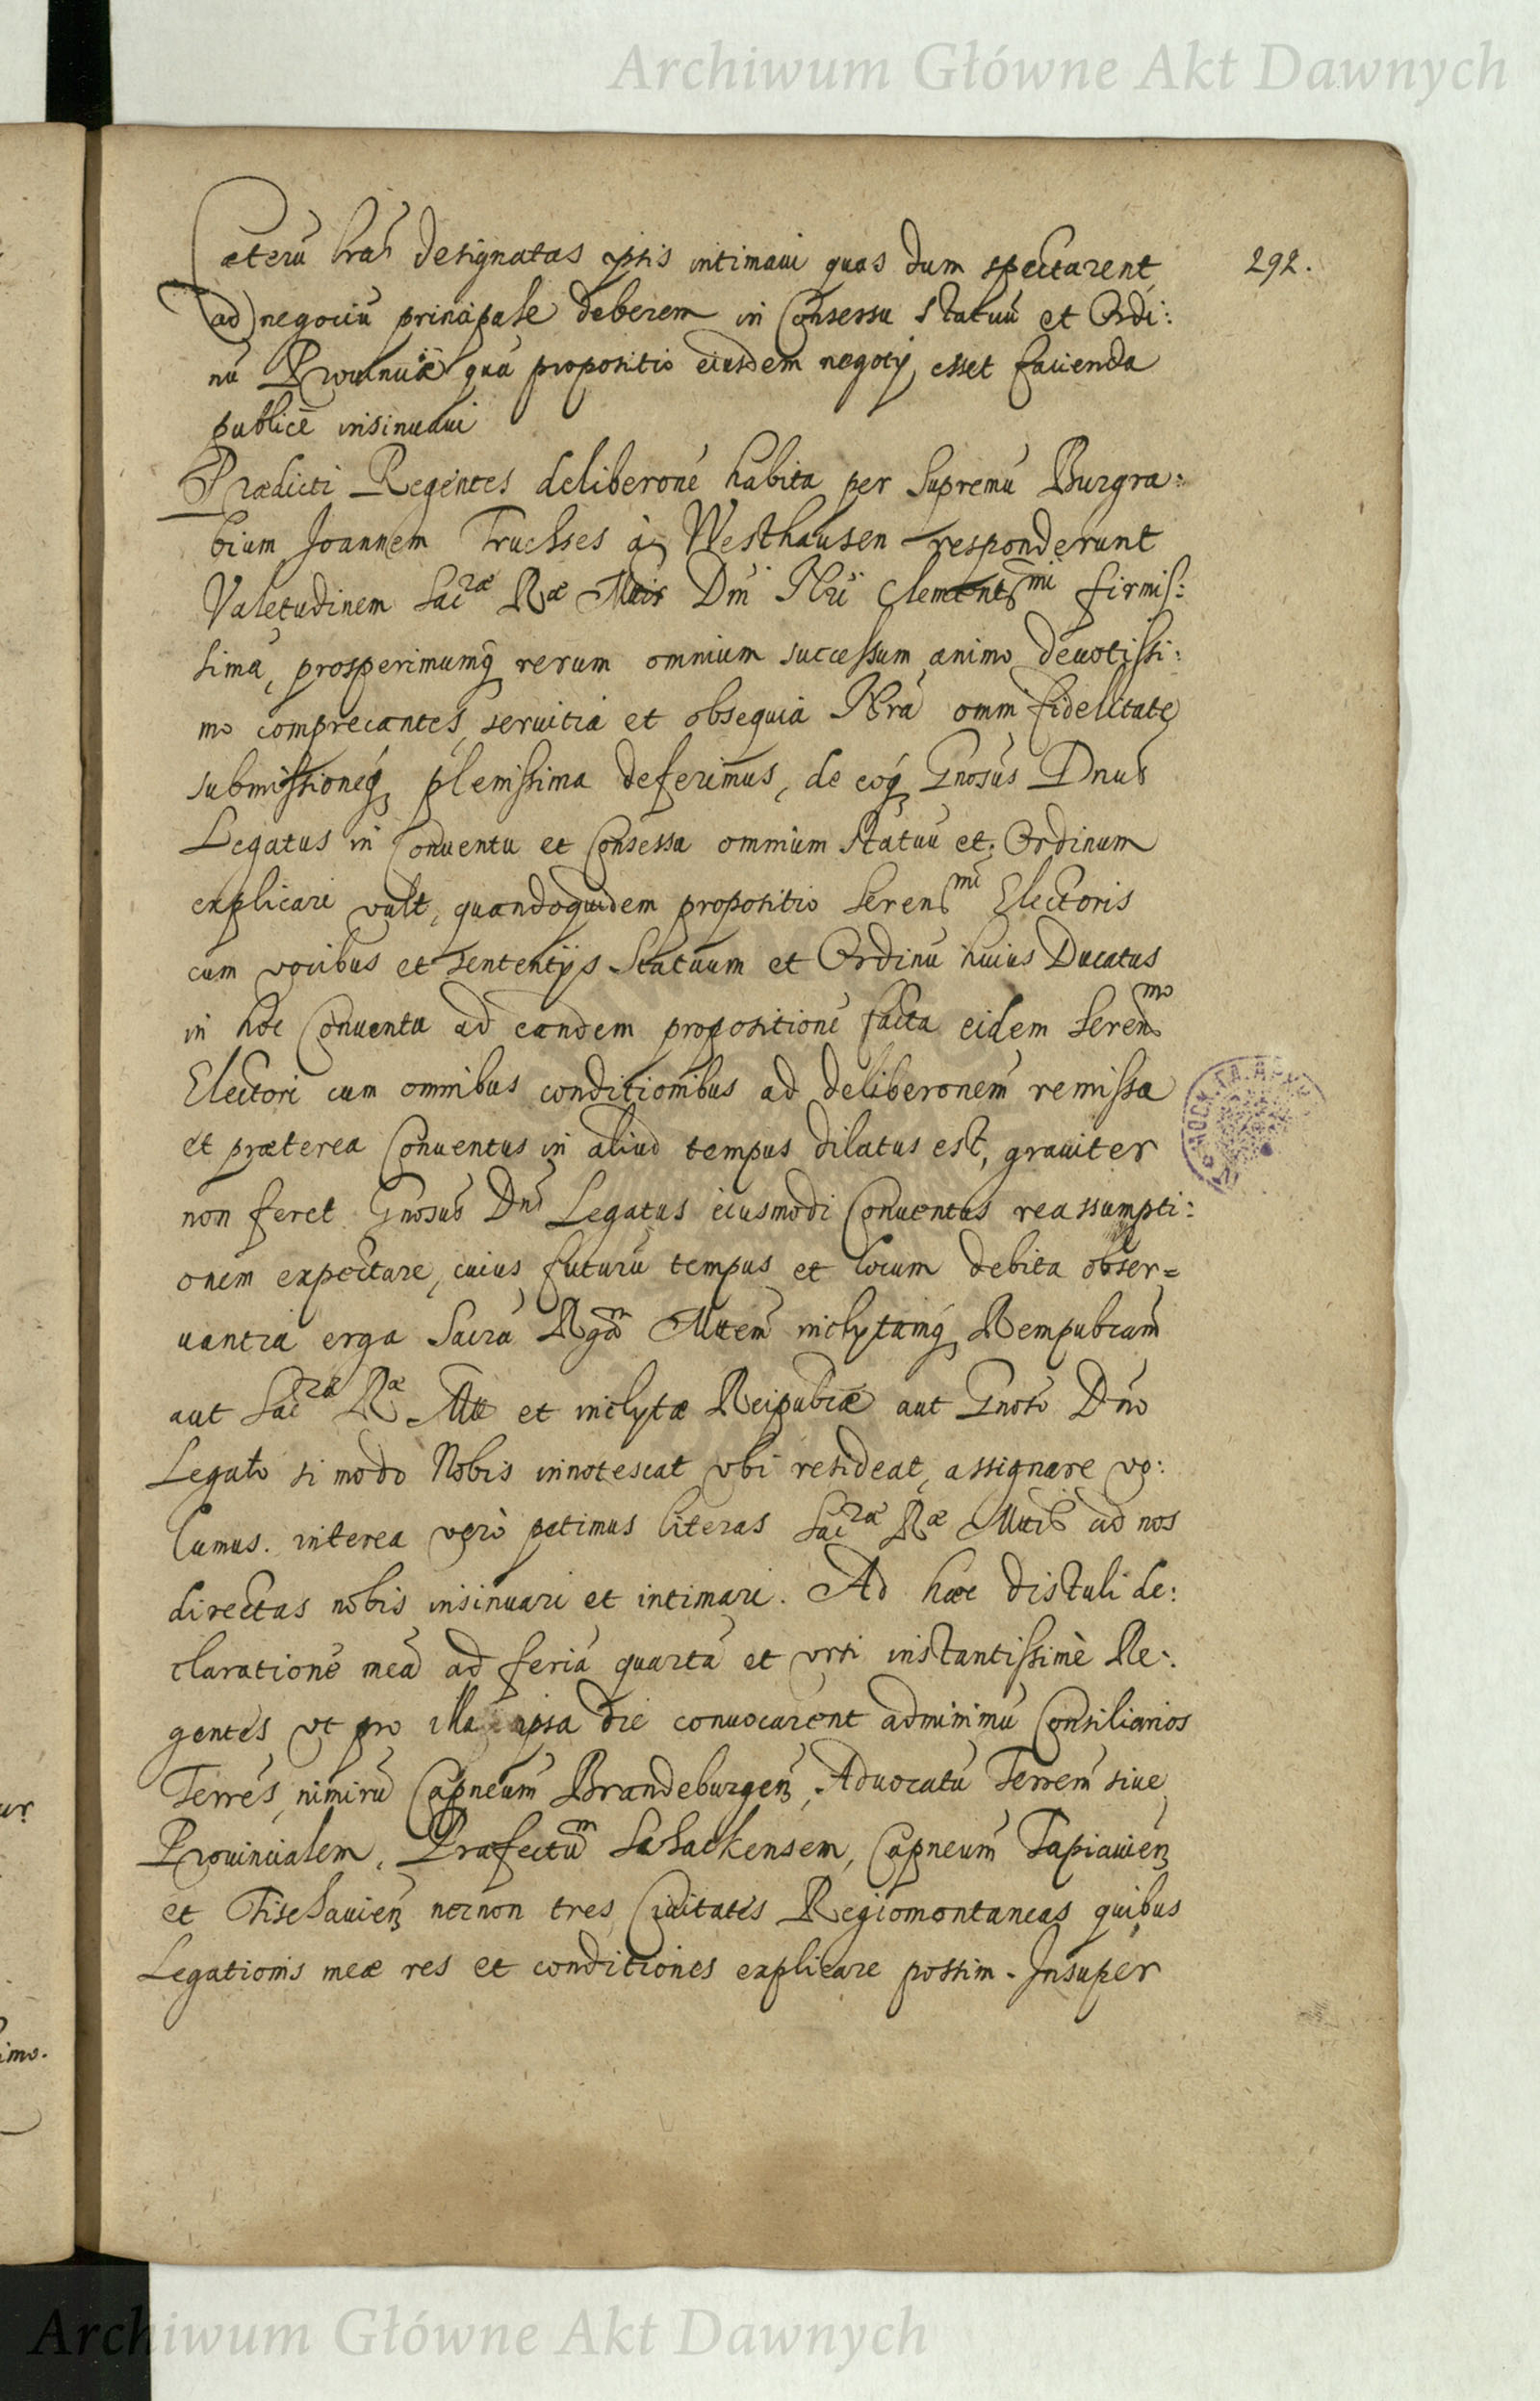 Archiwum Główne Akt Dawnych
292.
Cæterũ lras designatas ipsis intimaui quas dum spectarent
ad negociũ principale deberem in Consessu Statuũ et Ordi:
nũ Prouinciæ quũ propositio eiusdem negotij esset facienda
publicè insinuaui
Prædicti Regentes deliberone habita per Supremũ Burgra:
bium Joannem Truchses à Westhausen responderunt
Valetudinem Sacræ Ræ Mtis Dni Nri Clementsmi firmis:
simã, prosperimumq rerum omnium successum animo deuotissi:
mo comprecantes, seruitia et obsequia Nra omni fidelitate
submissioneq plenissima deferimus, de eoq Gnosus Dnus
Legatus in Conuentu et Consessu omnium Statuũ et Ordinum
explicari vult, quandoquidem propositio Serensmi Electoris
cum vocibus et sententijs Statuum et Ordinũ huius Ducatus
in hoc Conuentu ad eandem propositionẽ facta eidem Serenmo
Electori cum omnibus conditionibus ad deliberonem remissa
et præterea Conuentus in aliud tempus dilatus est, grauiter
non feret Gnosus Dns Legatus eiusmodi Conuentus reassumpti:
onem expectare, cuius futurũ tempus et locum debita obser=
uantia erga Sacrã Rgam Mttem inclytamq Rempubcam
aut Sacræ Ræ Mtti et inclytæ Reipubcæ aut Gnoso Dno
Legato si modo Nobis innotescat vbi resideat, assignare vo:
lumus. interea verò petimus literas Sacræ Ræ Mttis ad nos
directas nobis insinuari et intimari. Ad hæc distuli de:
clarationẽ meã ad feriã quartã et vrsi instantissimè Re:
gentes vt pro illa ipsa die conuocarent adminimũ Consiliarios
Terres, nimirũ Capneum Brandeburgen, Aduocatũ Terrem siue
Prouincialem, Præfectum Schackensem, Capneum Tapiauien
et Fischauien necnon tres Ciuitates Regiomontaneas quibus
Legationis meæ res et conditiones explicare possim. Insuper
Archiwum Główne Akt Dawnych